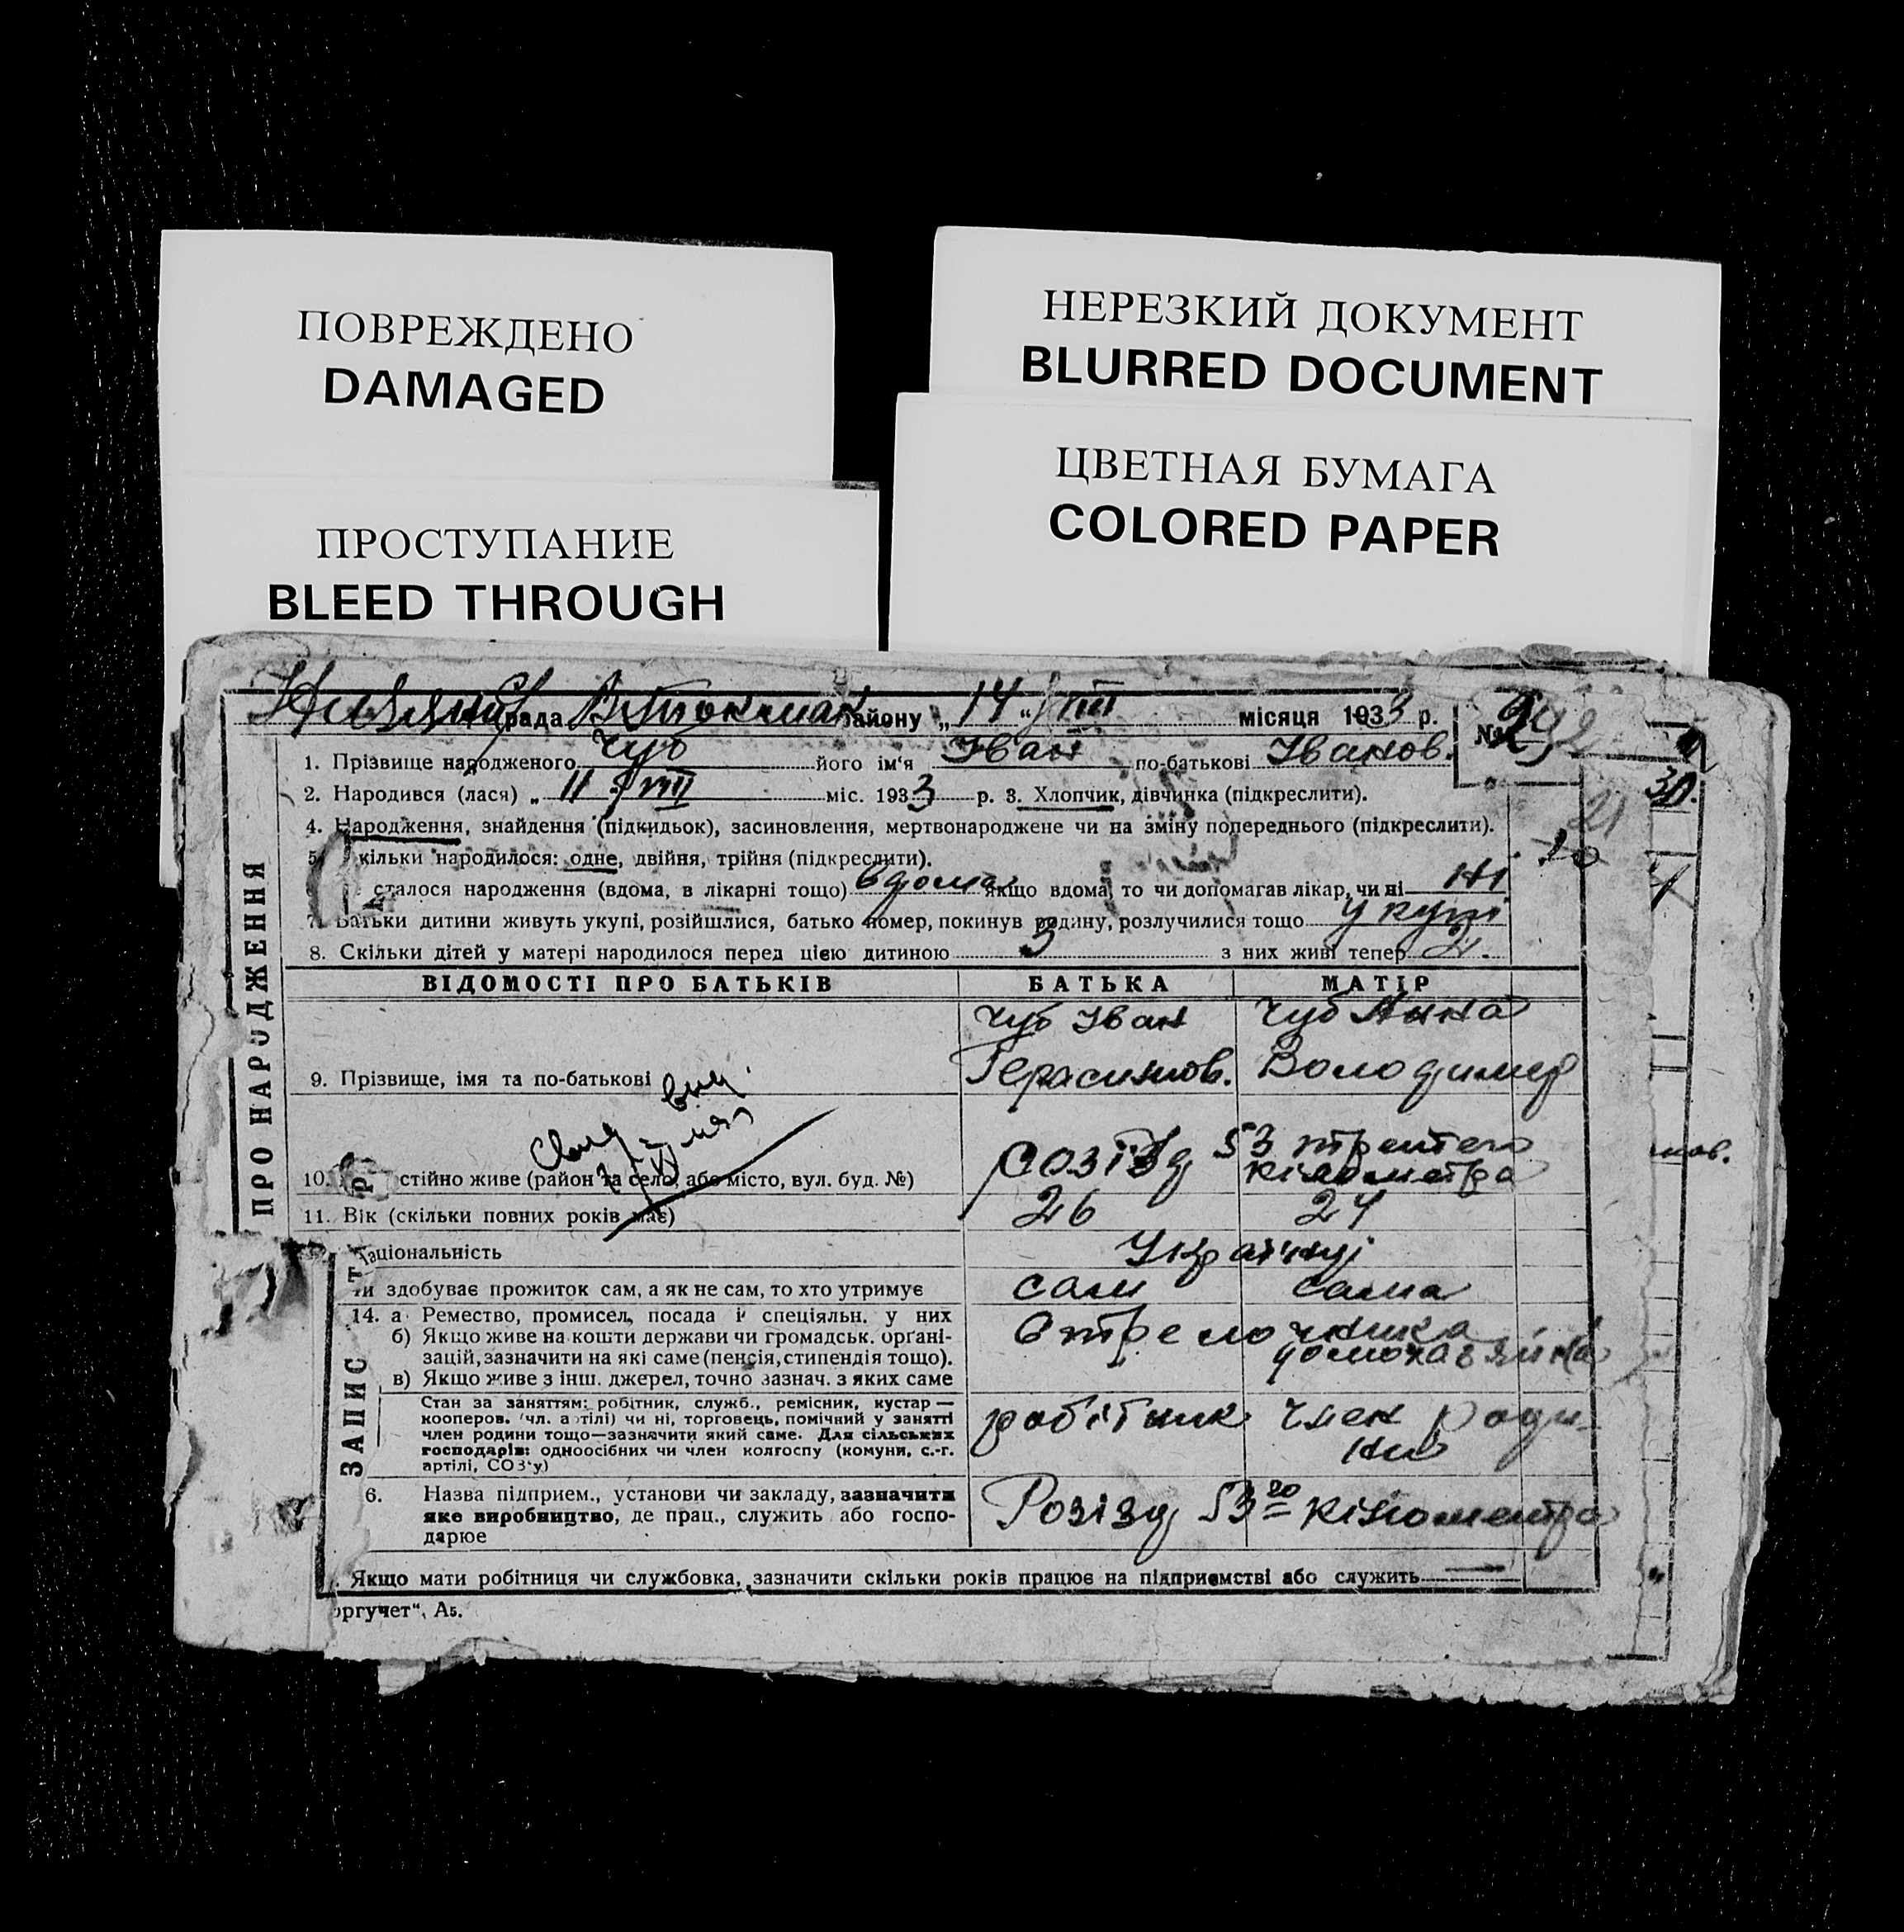 ПОВРЕЖДЕНО
DAMAGED
НЕРЕЗКИЙ ДОКУМЕНТ
BLURRED DOCUMENT
ЦВЕТНАЯ БУМАГА
COLORED PAPER
ПРОСТУПАНИЕ
BLEED THROUGH
рада В. Токмак району „14“ VIII місяця 1933 р. №
1. Прізвище народженого Чуб його ім'я Іван по-батькові Іванов.
2. Народився (лася) „11 VIII міс. 1933 р. 3. Хлопчик, дівчинка (підкреслити).
30.
4. Народження, знайдення (підкидьок), засиновлення, мертвонароджене чи на зміну попереднього (підкреслити).
21
5. кільки народилося: одне, двійня, трійня (підкреслити).
сталося народження (вдома, в лікарні тощо) вдома якщо вдома, то чи допомагав лікар, чи ні ні
7. Батьки дитини живуть укупі, розійшлися, батько помер, покинув родину, розлучилися тощо укупі
8. Скільки дітей у матері народилося перед цією дитиною 3 з них живі тепер 2.
ПРО НАРОДЖЕННЯ
ВІДОМОСТІ ПРО БАТЬКІВ БАТЬКА МАТІР
Чуб Іван Чуб Анна
9. Прізвище, імя та по-батькові Герасимов. Володимир
10. стійно живе (район та село, або місто, вул. буд. №) розїзд 53 третего кілометра
нов.
11. Вік (скільки повних років має) 26 24
аціональність Українці
ти здобуває прожиток сам, а як не сам, то хто утримує сам сама
14. а Ремество, промисел, посада й спеціяльн. у них Стрелочника
б) Якщо живе на кошти держави чи громадськ. органі- домохазяйка
зацій, зазначити на які саме (пенсія, стипендія тощо).
в) Якщо живе з інш. джерел, точно зазнач. з яких саме
ЗАПИС
Стан за заняттям: робітник, служб., ремісник, кустар—
кооперов. (чл. артілі) чи ні, торговець, помічний у занятті
член родини тощо—зазначити який саме. Для сільських
господарів: одноосібних чи член колгоспу (комуни, с.-г.
артілі, СОЗ'у)
робітник член роди-
ни
6. Назва підприєм., установи чи закладу, зазначити
яке виробництво, де прац., служить або госпо-
дарює
Розізд 53го кілометра
Якщо мати робітниця чи службовка, зазначити скільки років працює на підприємстві або служить —
оргучет“, А5.